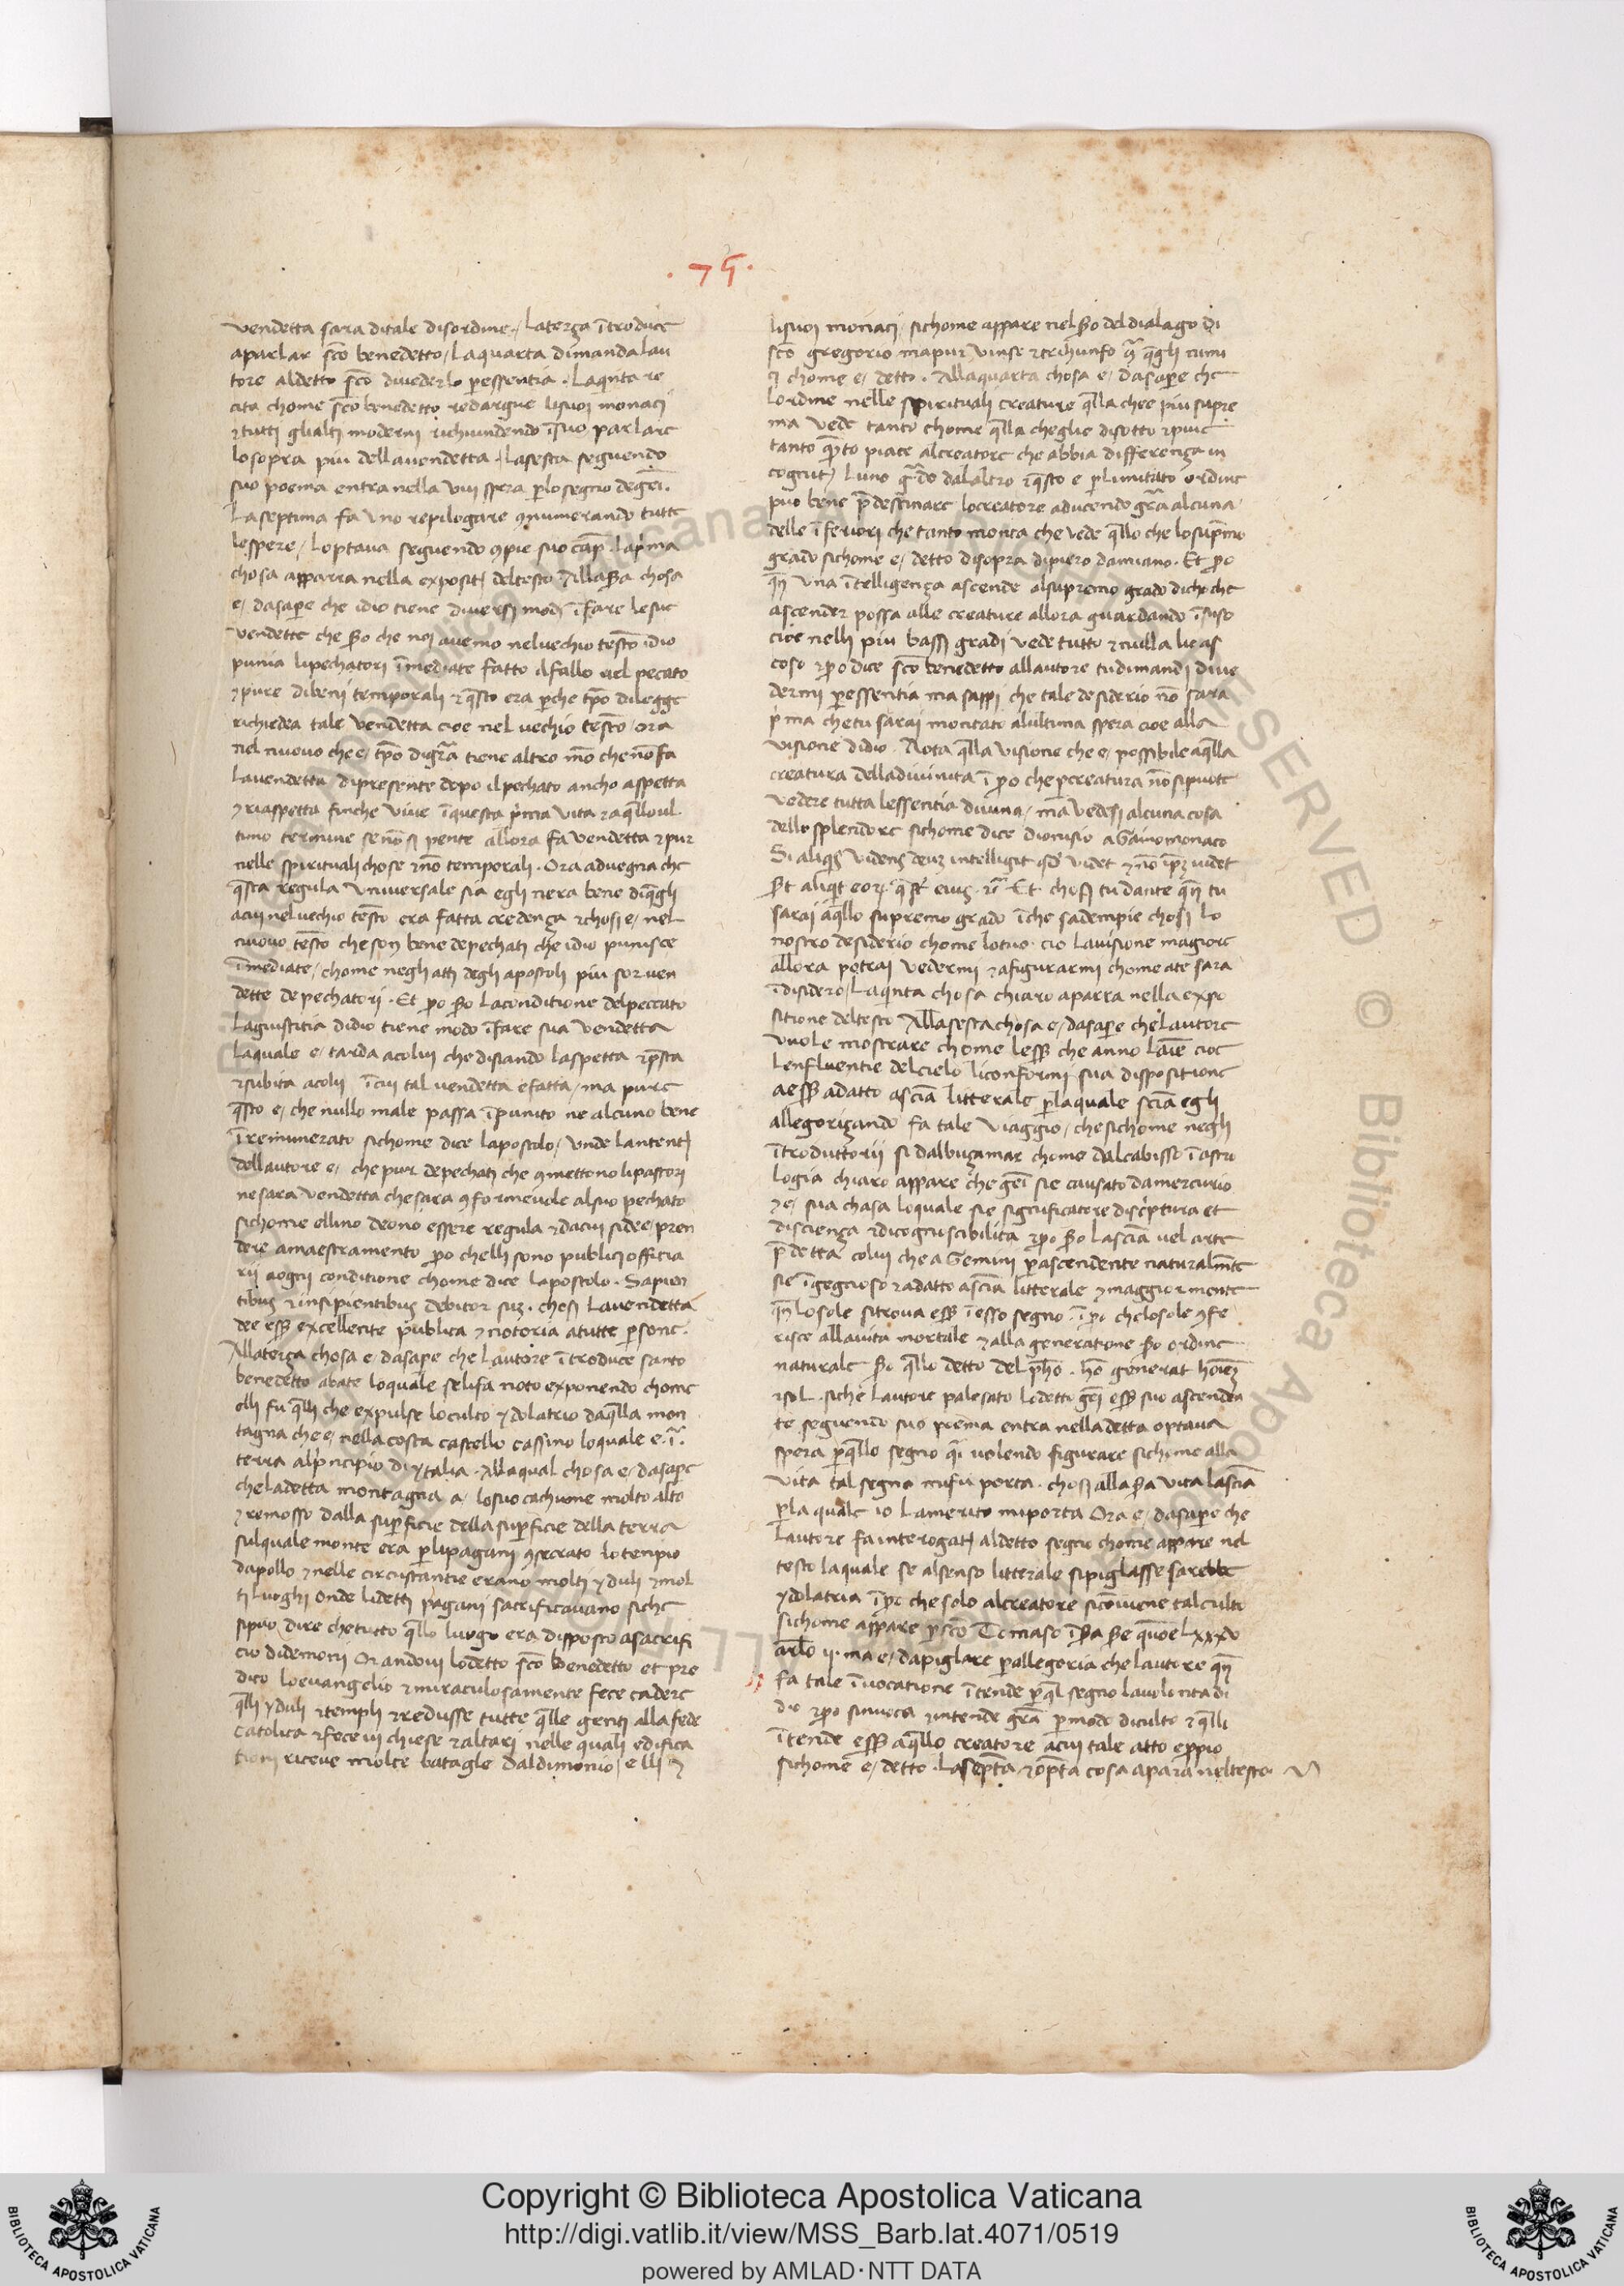 · 75 ·
vendetta sara ditale disordine / Laterza ītroduce
aparlar sc̄o benedetto / Laquarta dimanda lau
tore aldetto sc̄o divederlo p̱essentia . Laqi̱nta re
cita chome sc̄o benedetto redargue lisuoi monaci
⁊ tutti glialtrj moderni richiuindendo īsuo parlare
losopra piu dellavendetta . Lasesta seguendo
suo poema entra nella viij spera p̱lo segno degeī .
Laseptima fa uno repilogare ꝯnumerando tutte
lespere / Loptava seguendo ꝯpie suo cap̄ . lap̱ma
chosa apparra nella expositj̄ deltesto Alla chosa
e / dasap̱e che idio tiene diversi modi īfare lesue
vendette che noi avemo nelvechio testo idio
punia lipechatori īmediate fatto ilfallo nel pecato
⁊ pure dibenij temporali ⁊ q̄sto era p̱che tp̄o dilegge
richiedea tale vendetta cioe nel vechio testo / ora
nel nuovo che e / tp̄o digr̄a tiene altro mō che nōfa
Lavendetta dipresente depo ilpechato ancho aspetta
⁊ riaspetta finche vive īquesta p̱ma vita ⁊ aq̄lloul
timo termine senō si pente allora fa vendetta ⁊ pur
nelle spirituali chose ⁊ nō temporali . Ora advegna che
q̄sta regula universale sia egli nera bene diq̄gli
acuj nelvechio testo era fatta credenza ⁊ chosi e / nel
nuovo testo che son bene depechatj che idio punisce
īmediate / chome neglj attj degli apostoli piu for ven
dette depechatorj . Et p̱o laconditione delpeccato
Lagiustitia didio tiene modo īfare sua vendetta
Laquale e / tarda acolui che disiando laspetta
⁊ subita acolui īcuj tal vendetta efatta / ma pure
q̄sto e / che nullo male passa īpunito ne alcuno bene
īremunerato sichome dice lapostolo / unde lantentj̄
dellautore e / che pur depechatj che ꝯmettono lipastori
nesara vendetta chesara ꝯformevole alsuo pechato
sichome ellino deono essere regula ⁊ dacuj sidee / pren
dere amaestramento p̱o chelli sono publici officia
rij aogni conditione chome dice lapostolo . Sapien
tibus ⁊ insipientibus debitor suz . chosi Lavendetta
dee ess̱ excellente publica ⁊ notoria atutte p̱sone .
Allaterza chosa e / dasape che Lautore ītroduce santo
benedetto abate loquale selifa noto exponendo chome
elli fu q̄lli che expulse loculto ydolatrio daq̄lla mon
tagna che e / nella costa castello cassino loquale e .
terra alp̱ncipio di ytalia . Allaqual chosa e / dasap̱e
cheladetta montagna a / losuo cachume molto alto
⁊ remosso dalla sup̱ficie della sup̱ficie della terra
sulquale monte era p̱lipagani ꝯsecrato lotenpio
dapollo ⁊ nelle circustantie erano molti yduli ⁊ mol
ti luoghi onde lidetti pagani sacrificavano siche
sipuo dire chetutto q̄llo luogo era disposto asacrifi
cio didemonij Orandovi lodetto sc̄o Benedetto et pre
dico loevangelio ⁊ miraculosamente fece cadere
q̄lli yduli ⁊ templi ⁊ redusse tutte q̄lle gentj alla fede
catolica ⁊ fecevi chiese ⁊ altarj nelle qualj edifica
tioni riceve molte batagle daldimonio / elli ⁊
lisuoi monaci / sichome appare nel deldialago di
sc̄o gregorio mapur vinse ⁊ trihunfo
chome e / detto . Allaquarta chosa e / dasap̱e che
Lordine nelle spirituali creature q̄lla chee piu supre
ma vede tanto chome q̄lla cheglie disotto ⁊ piue
tanto piace alcreatore che abbia differenza in
luno dalaltro ⁊ q̄sto e p̱limitato ordine
puo bene p̄destinare locreatore aducendo gr̄a alcuna
delle īferiori che tanto monta che vede q̄llo che losup̱mo
grado sichome e / detto disopra dipiero damiano . Et p̱o
q̄n una ītelligenza ascende alsupremo grado diche che
ascender possa alle creature allora guardando īsuso
cioe nelli piu bassi gradi vede tutto ⁊ nulla lie as
coso ⁊ p̱o dice sc̄o benedetto allautore tudimandi dive
dermi p̱essentia ma sappi che tale desiderio nō sara
p̱ma chetu sarai montato alultima spera cioe alla
visione didio . Nota q̄lla visione che e / possibile aq̄lla
creatura delladivinita ī p̱o che p creatura nō sipuote
vedere tutta lessentia divina / ma vedesi alcuna cosa
dello splendore sichome dice dionisio aGaiomonaco
Si aliqis videns deuz intelligit qd̄ videt ⁊ nō ip̄z videt
Et chosi tu dante q̄n tu
sarai aq̄llo supremo grado īche sadempie chosi lo
nostro desiderio chome lotuo . cio Lavisione magiore
allora potrai vedermi ⁊ afigurarmi chome ate sara
īdisidero / Laqi̱nta chosa chiaro aparra nella expo
sitione deltesto Allasesta chosa e / dasap̱e cheLautore
vuole mostrare chome che anno cioe
Lenfluentie delcielo liconformi sua dispositione
adatto asciā litterale p̱laquale sciā egli
allegorizando fa tale viaggio / che sichome negli
ītroduttorij si dalbuzamar chome dalcabisso īastro
logia chiaro appare che geī sie causato damercurio
⁊ e / sua chasa loquale sie significatore discriptura et
discienza ⁊ dicognuscibilita ⁊ p̱o lasciā vel arte
p̄detta colui che a Gemini p̱ascendente naturalm̄te
sie īgegnoso ⁊ adatto asciā litterale ⁊ maggiormente
q̄n losole sitrova ess̱ īesso segno . ī p̱o chelosole ꝯfe
risce allavita mortale ⁊ alla generatione ordine
naturale q̄llo detto del ph̄o . hō generat hoīez
⁊ sol . siche Lautore palesato Lodetto geī ess̱ suo ascenden
te seguendo suo poema entra nella detta optava
spera p̱q̄llo segno volendo figurare sichome alla
vita tal segno mifu porta . chosi alla vita lasciā
p̱la quale io lamerito miporta Ora e / dasape che
Lautore fa interogatj̄ aldetto segno chome appare nel
testo laquale se alsenso litterale sipiglasse sarebbe
ydolatria ī p̱o che solo alcreatore sicōviene tal culto
sichome appare p̱sc̄o Tomaso Lxxxv
ij . ma e / dapiglare p̱allegoria che lautore q̄n
fa tale īvocatione ītende p̱q̄l segno lavolonta di
dio ⁊ p̱o sinvoca ⁊ intende gr̄a p̱modo diculto ⁊ q̄lli
ītende ess̱ aq̄llo creatore acuj tale atto
sichome e / detto . Laseptā ⁊ optā cosa apara neltesto .
Copyright © Biblioteca Apostolica Vaticana
http://digi.vatlib.it/view/MSS_Barb.lat.4071/0519
powered by AMLAD·NTT DATA
BIBLIOTECA APOSTOLICA VATICANA
BIBLIOTECA APOSTOLICA VATICANA